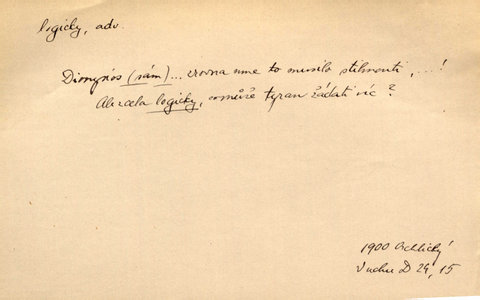 logicky, adv.
Dionysos (sám)... zrovna mne to musilo stihnouti,...!
Ale zcela logicky, co může tyran žádati víc?
1900 Vrchlický
D 24, 15